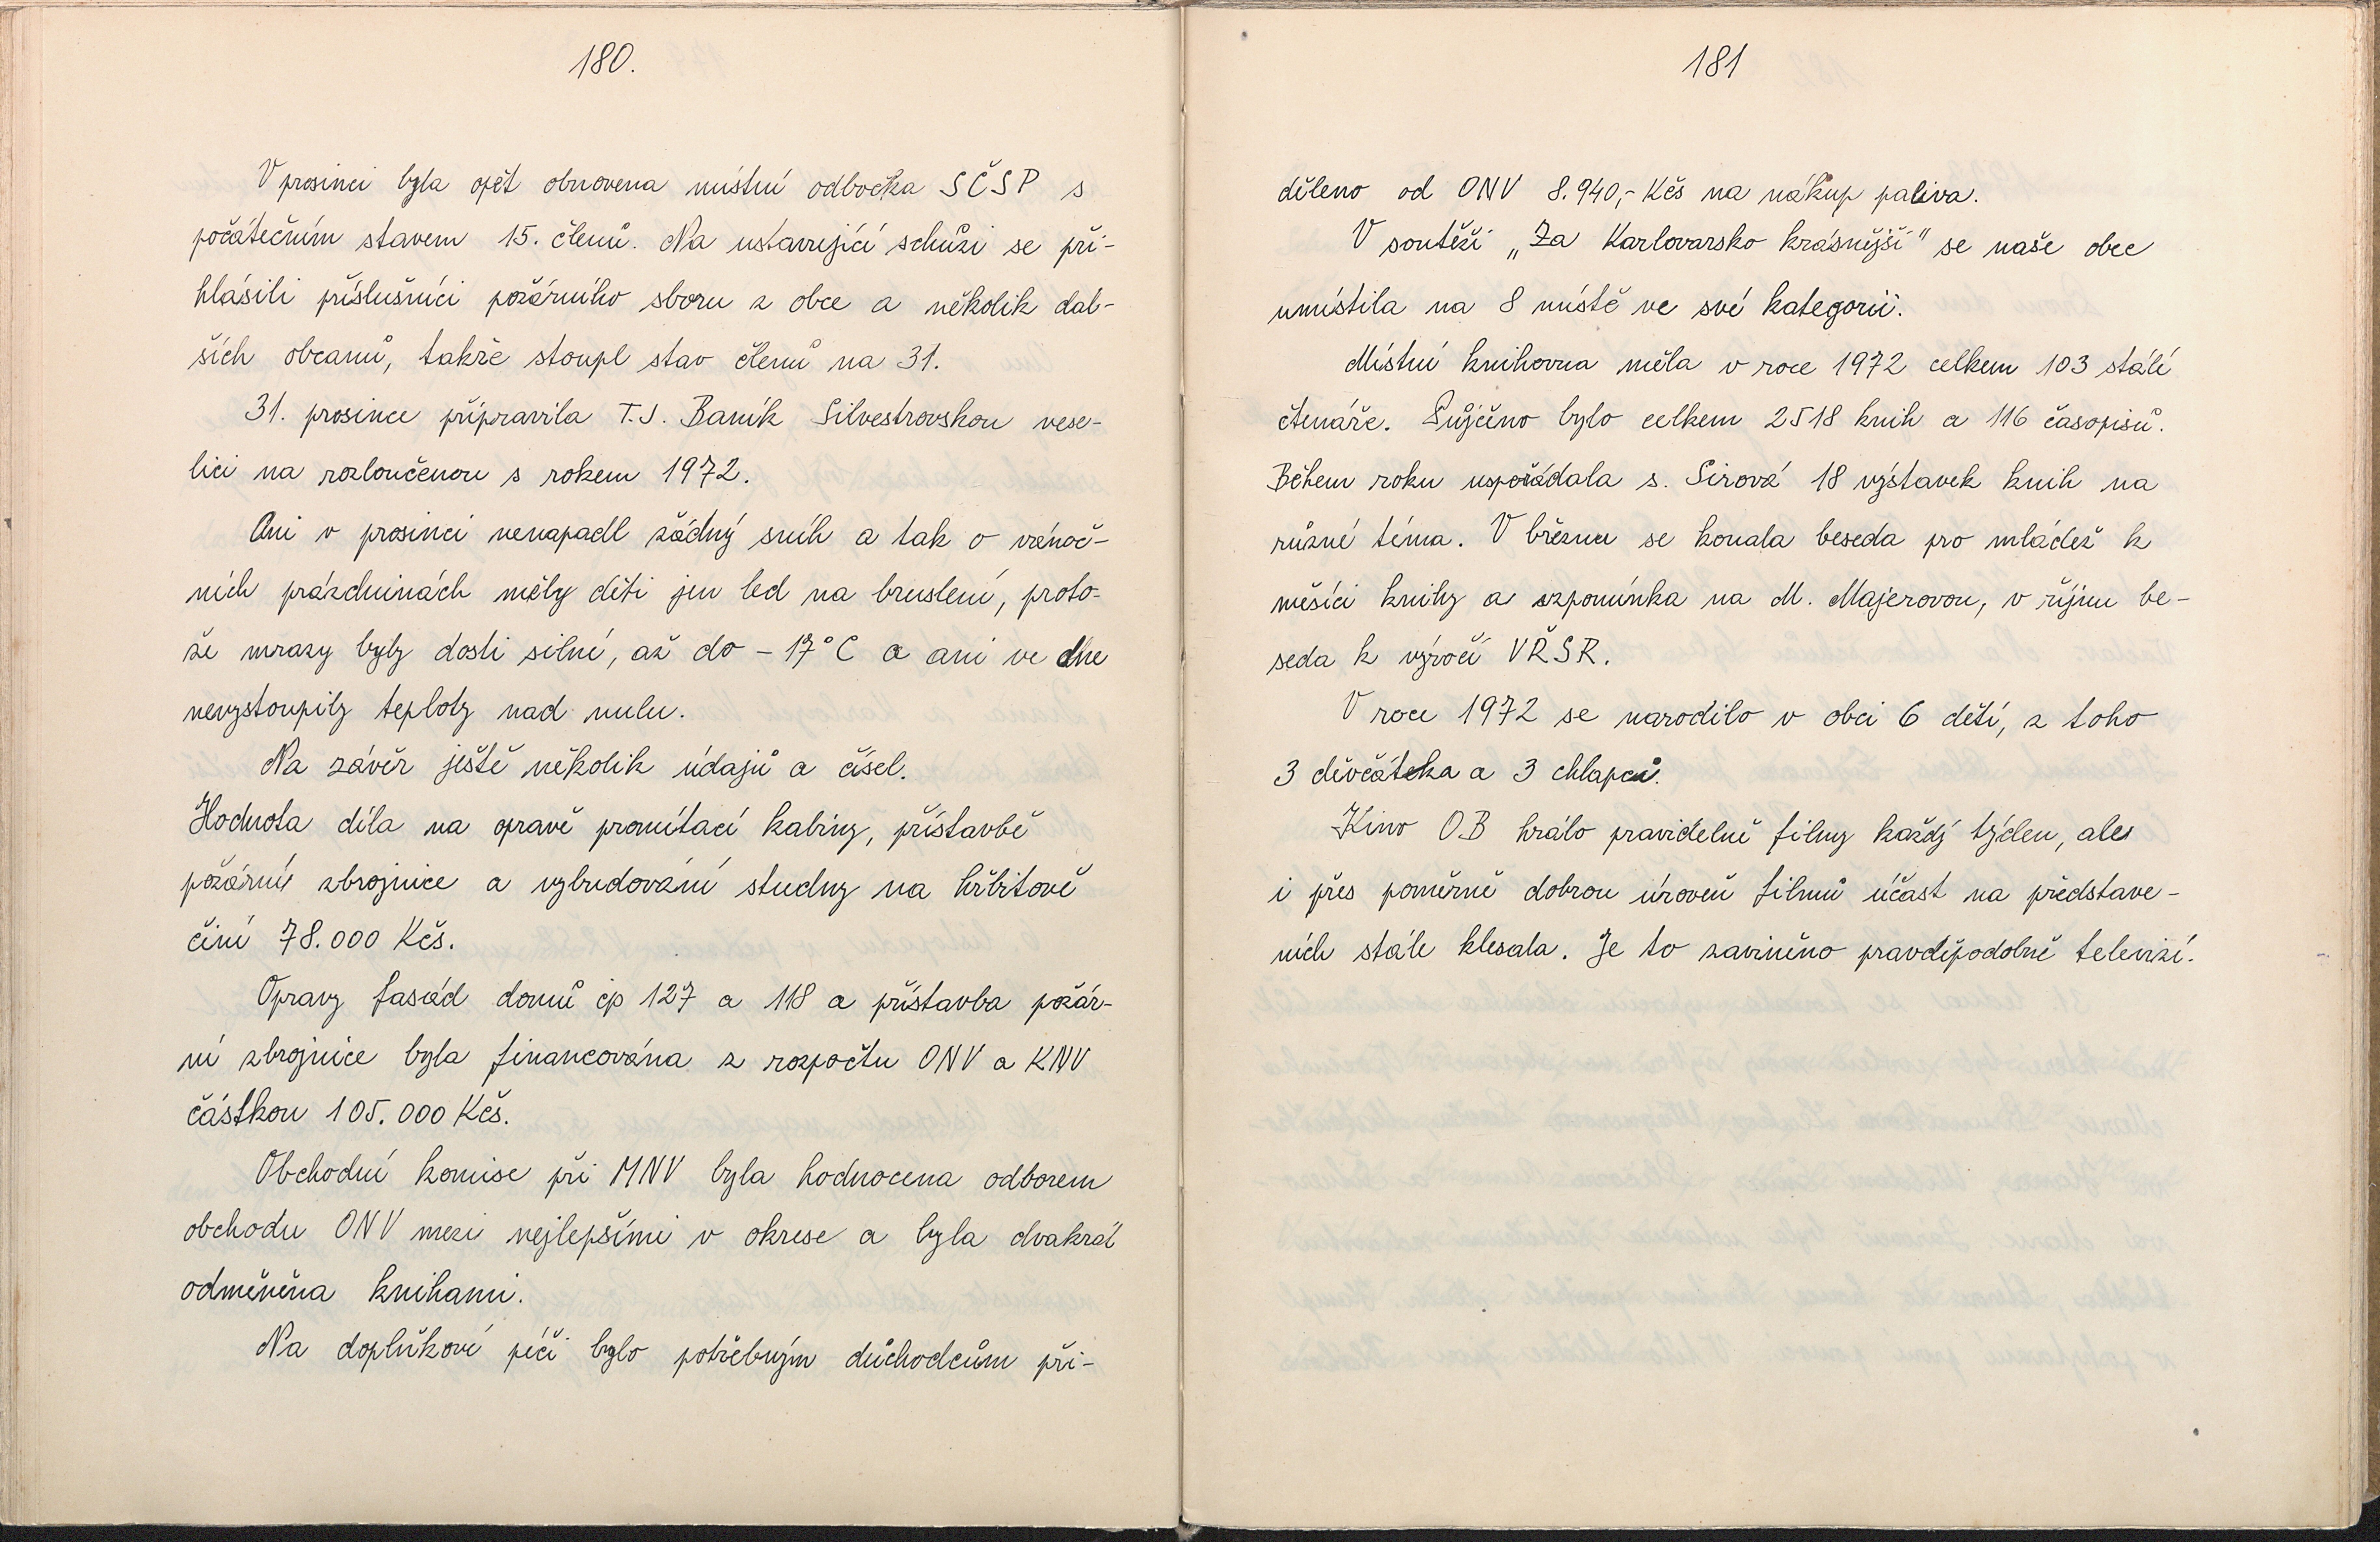 180.
V prosinci byla opět obnovena místní odbočka SČSP s
počátečním stavem 15. členů. Na ustavující schůzi se při-
hlásili příslušníci požárního sboru z obce a několik dal-
ších občanů, takže stoupl stav členů na 31.
31. prosince připravila T.J. Baník Silvestrovskou vese-
lici na rozloučenou s rokem 1972.
Ani v prosinci nenapadl žádný sníh a tak o vánoč-
ních prázdninách měly děti jen led na bruslení, proto-
že mrazy byly dosti silné, až do - 17°C a ani ve dne
nevystoupily teploty nad nulu.
Na závěr ještě několik údajů a čísel.
Hodnota díla na opravě promítací kabiny, přístavbě
požární zbrojnice a vybudování studny na hřbitově
činí 78.000 Kčs.
Opravy fasád domů čp 127 a 118 a přístavba požár-
ní zbrojnice byla financována z rozpočtu ONV a KNV
částkou 105.000 Kčs.
Obchodní komise při MNV byla hodnocena odborem
obchodu ONV mezi nejlepšími v okrese a byla dvakrát
odměněna knihami.
Na doplňkové péči bylo potřebným důchodcům při-
181
děleno od ONV 8.940,- Kčs na nákup paliva.
V soutěži „Za Karlovarsko krásnější" se naše obec
umístila na 8 místě ve své kategorii.
Místní knihovna měla v roce 1972 celkem 103 stálé
čtenáře. Půjčeno bylo celkem 2518 knih a 116 časopisů.
Během roku uspořádala s. Sirová 18 výstavek knih na
různé téma. V březnu se konala beseda pro mládež k
měsíci knihy a vzpomínka na M. Majerovou, v říjnu be-
seda k výročí VŘSR.
V roce 1972 se narodilo v obci 6 dětí, z toho
3 děvčátka a 3 chlapci.
Kino OB hrálo pravidelně filmy každý týden, ale
i přes poměrně dobrou úroveň filmů účast na představe-
ních stále klesala. Je to zaviněno pravděpodobně televizí.